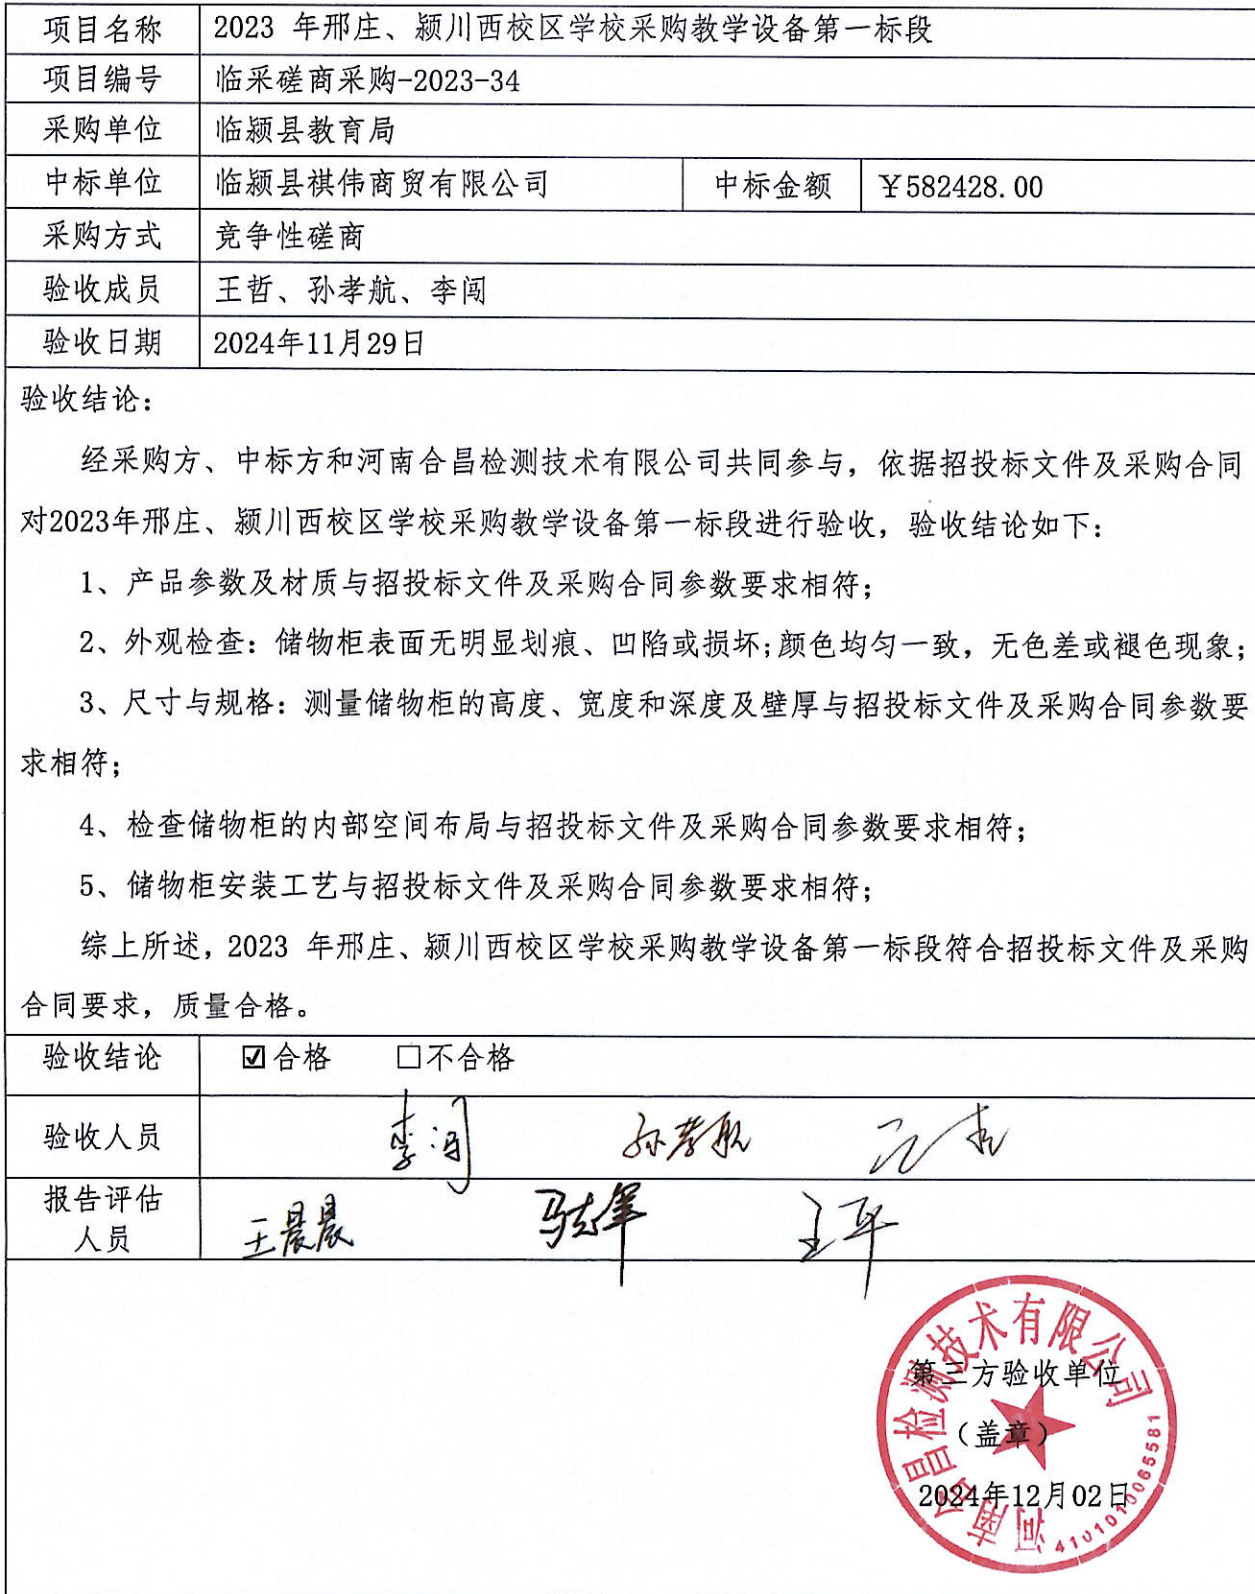 项目名称 2023 年邢庄、颍川西校区学校采购教学设备第一标段
项目编号 临采磋商采购-2023-34
采购单位 临颍县教育局
中标单位 临颍县祺伟商贸有限公司 中标金额 ¥582428.00
采购方式 竞争性磋商
验收成员 王哲、孙孝航、李闯
验收日期 2024年11月29日
验收结论：
经采购方、中标方和河南合昌检测技术有限公司共同参与，依据招投标文件及采购合同
对2023年邢庄、颍川西校区学校采购教学设备第一标段进行验收，验收结论如下：
1、产品参数及材质与招投标文件及采购合同参数要求相符；
2、外观检查：储物柜表面无明显划痕、凹陷或损坏;颜色均匀一致，无色差或褪色现象；
3、尺寸与规格：测量储物柜的高度、宽度和深度及壁厚与招投标文件及采购合同参数要
求相符；
4、检查储物柜的内部空间布局与招投标文件及采购合同参数要求相符；
5、储物柜安装工艺与招投标文件及采购合同参数要求相符；
综上所述，2023 年邢庄、颍川西校区学校采购教学设备第一标段符合招投标文件及采购
合同要求，质量合格。
验收结论 ☑合格 □不合格
验收人员 李闯 孙孝航 王哲
报告评估
人员 王晨晨 马志军 王平
河南合昌检测技术有限公司
第三方验收单位
（盖章）
2024年12月02日
4101010065581